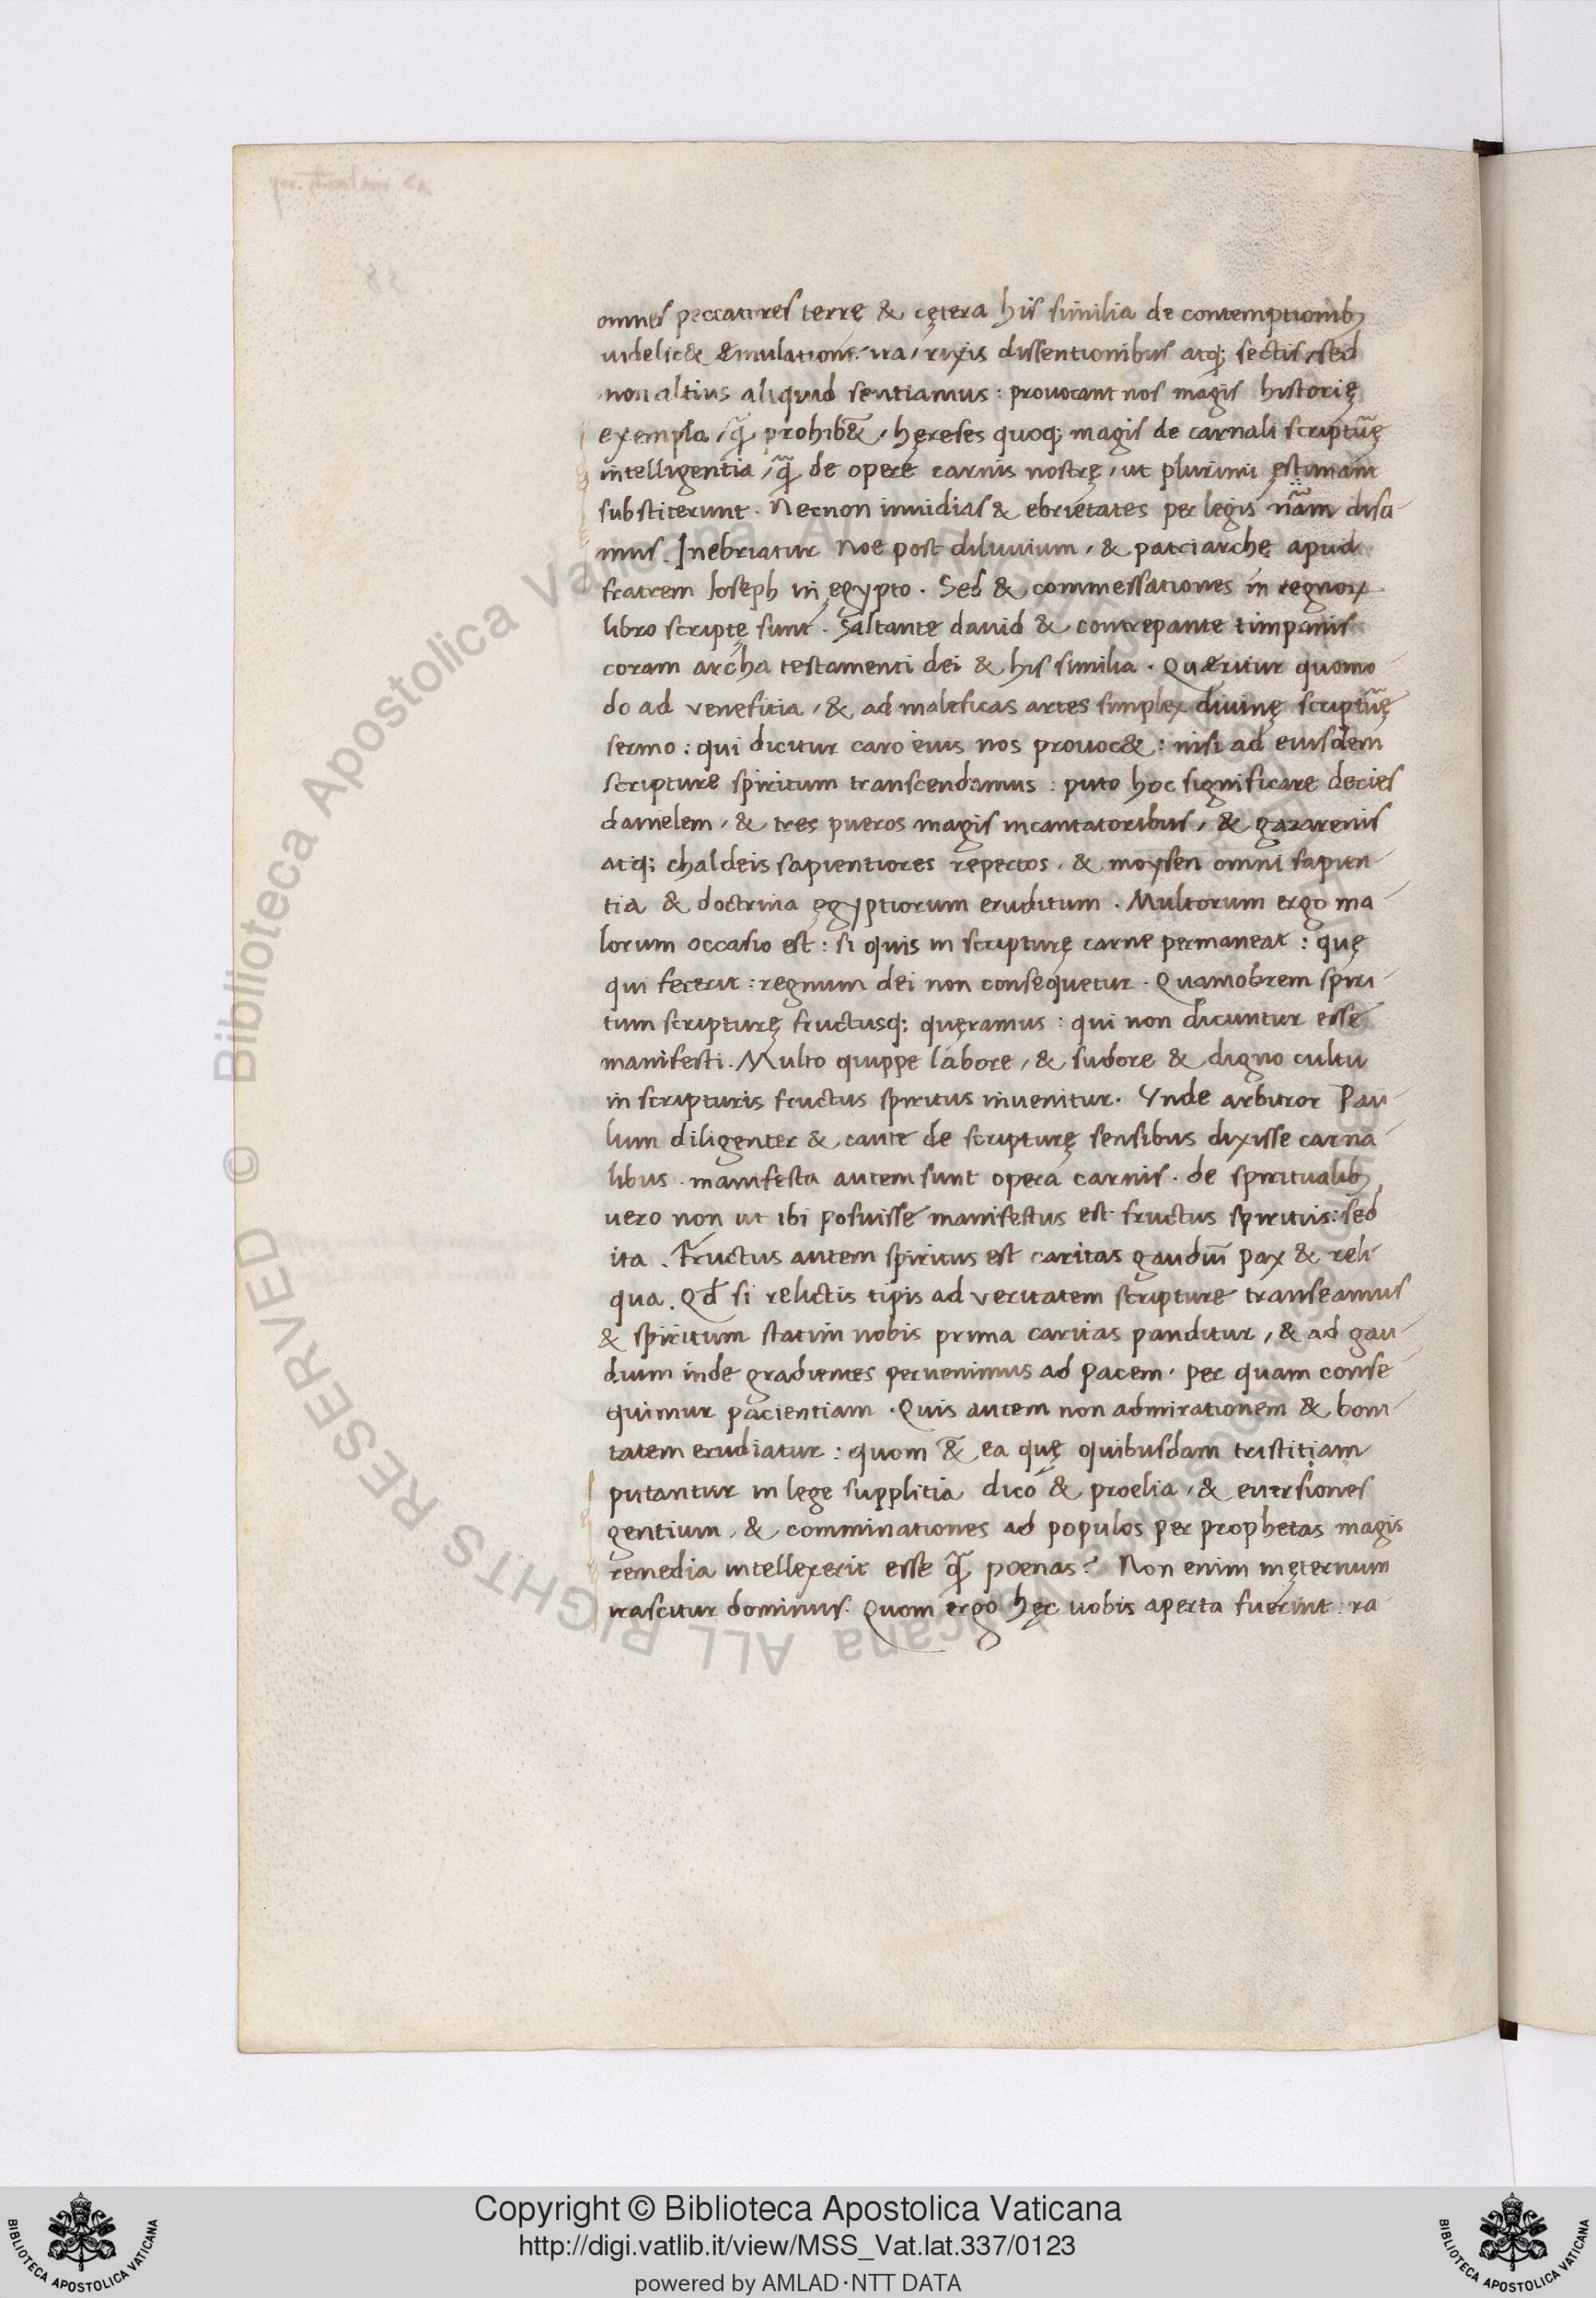 omnes peccatores terrę & cętera his similia de contemptionib;
uidelic& æmulatione. ira, rixis dissentionibus atq; sectis, sed
non altius aliquid sentiamus : prouocant nos magis historię
exempla, q̃ prohib&̃, hęreses quoq; magis de carnali scriptũę
intelligentia, q̃ de opere carnis nostrę, ut plurimi ęstimant
substiterunt. Necnon inuidias & ebrietates per legis ñam disci-
mus. Inebriatur Noe post diluuium, & patriarchę apud
fratrem Ioseph in ęgypto. Sed & commessationes in regnoꝝ
libro scriptę sunt. Saltante dauid & contrepante timpanis
coram archa testamenti dei & his similia. Quæritur quomo-
do ad venefitia, & ad maleficas artes simplex diuinę scriptũę
sermo : qui dicitur caro eius nos prouoc& : nisi ad eiusdem
scripture spiritum transcendamus : puto hoc significare decies
danielem, & tres pueros magis incantatoribus, & gazarenis
atq; chaldeis sapientiores repertos, & moysen omni sapien-
tia & doctrina ęgyptiorum eruditum. Multorum ergo ma-
lorum occasio est : si quis in scripturę carne permaneat : quę
qui fecerit : regnum dei non consequetur. Quamobrem spiri-
tum scripturę fructusq; quęramus : qui non dicuntur esse
manifesti. Multo quippe labore, & sudore & digno cultu
in scripturis fructus spiritus inuenitur. Vnde arbitror Pau-
lum diligenter & caute de scripturę sensibus dixisse carna-
libus. manifesta autem sunt opera carnis. de spiritualib;
uero non ut ibi posuisse manifestus est fructus spiritus : sed
ita. Fructus autem spiritus est caritas gaudiũ pax & reli-
qua. Qđ si relictis tipis ad veritatem scripture transeamus
& spiritum statim nobis prima caritas panditur, & ad gau-
dium inde gradientes peruenimus ad pacem. per quam conse-
quimur pacientiam. Quis autem non admirationem & boni-
tatem erudiatur : quom &̃ ea quę quibusdam tristitiam
putantur in lege supplitia dico & proelia, & euersiones
gentium, & comminationes ad populos per prophetas magis
remedia intellexerit esse q̃ poenas? Non enim in ęternum
irascitur dominus. Quom ergo hęc uobis aperta fuerint : ra-
© Biblioteca Apostolica Vaticana ALL RIGHTS RESERVED
Copyright © Biblioteca Apostolica Vaticana
http://digi.vatlib.it/view/MSS_Vat.lat.337/0123
powered by AMLAD·NTT DATA
BIBLIOTECA APOSTOLICA VATICANA
BIBLIOTECA APOSTOLICA VATICANA